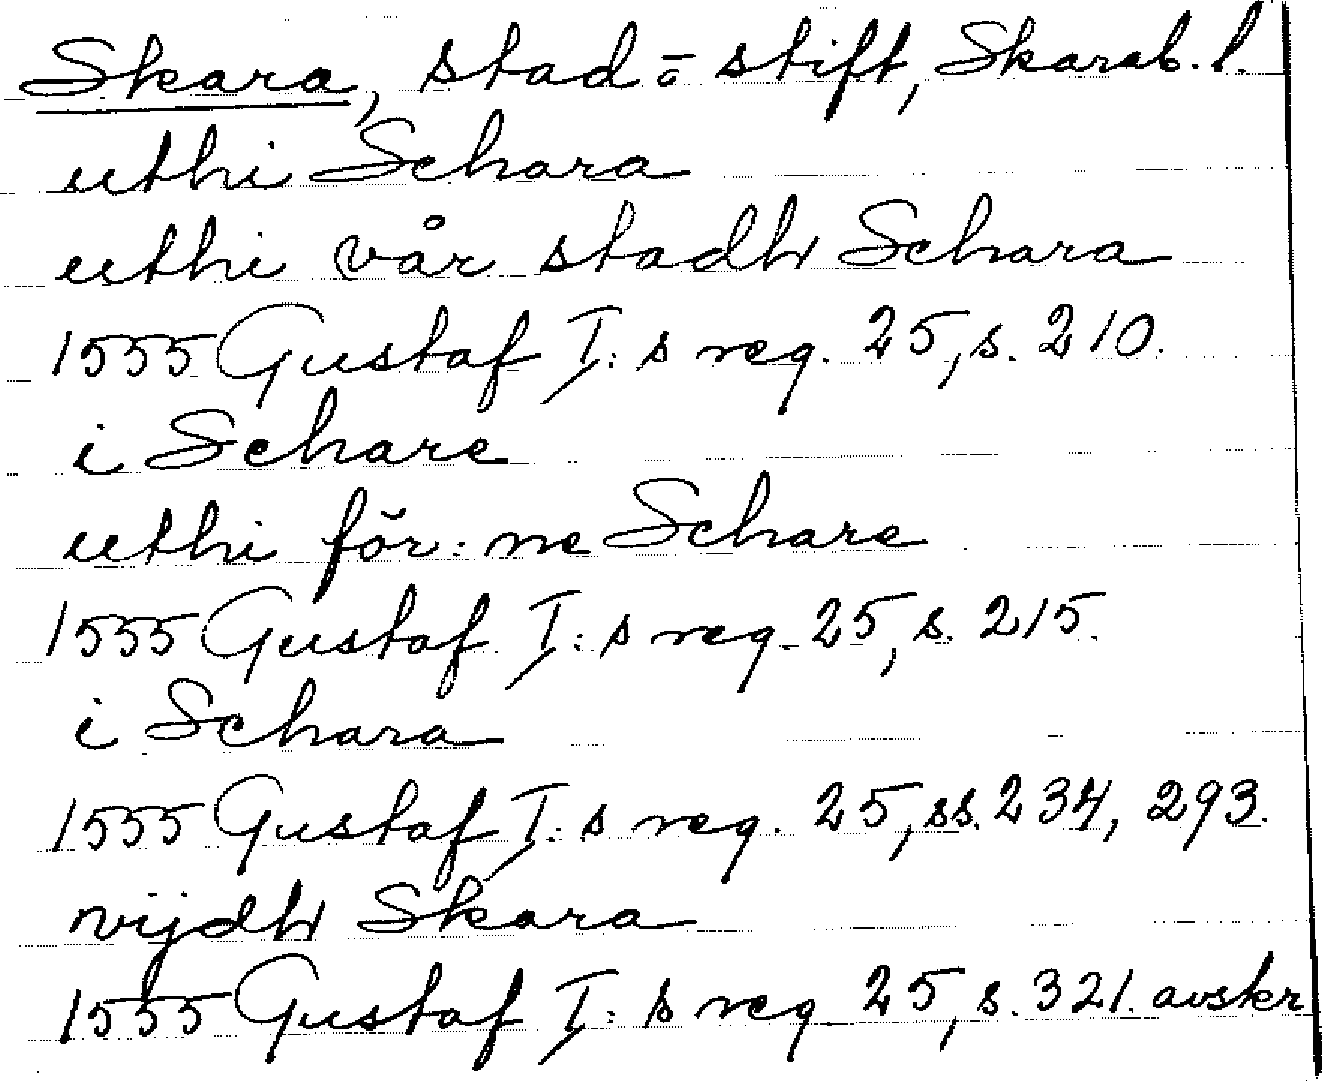 Skara, stad o stift, Skarab. l.
uthi Schara
uthi vår stadh Schara
1555 Gustaf I:s reg. 25, s. 210.
i Schare
uthi för:ne Schare
1555 Gustaf I:s reg. 25, s. 215.
i Schara
1555 Gustaf I:s reg. 25, ss. 234, 293.
vijdh Skara
1555 Gustaf I:s reg 25, s. 321. avskr